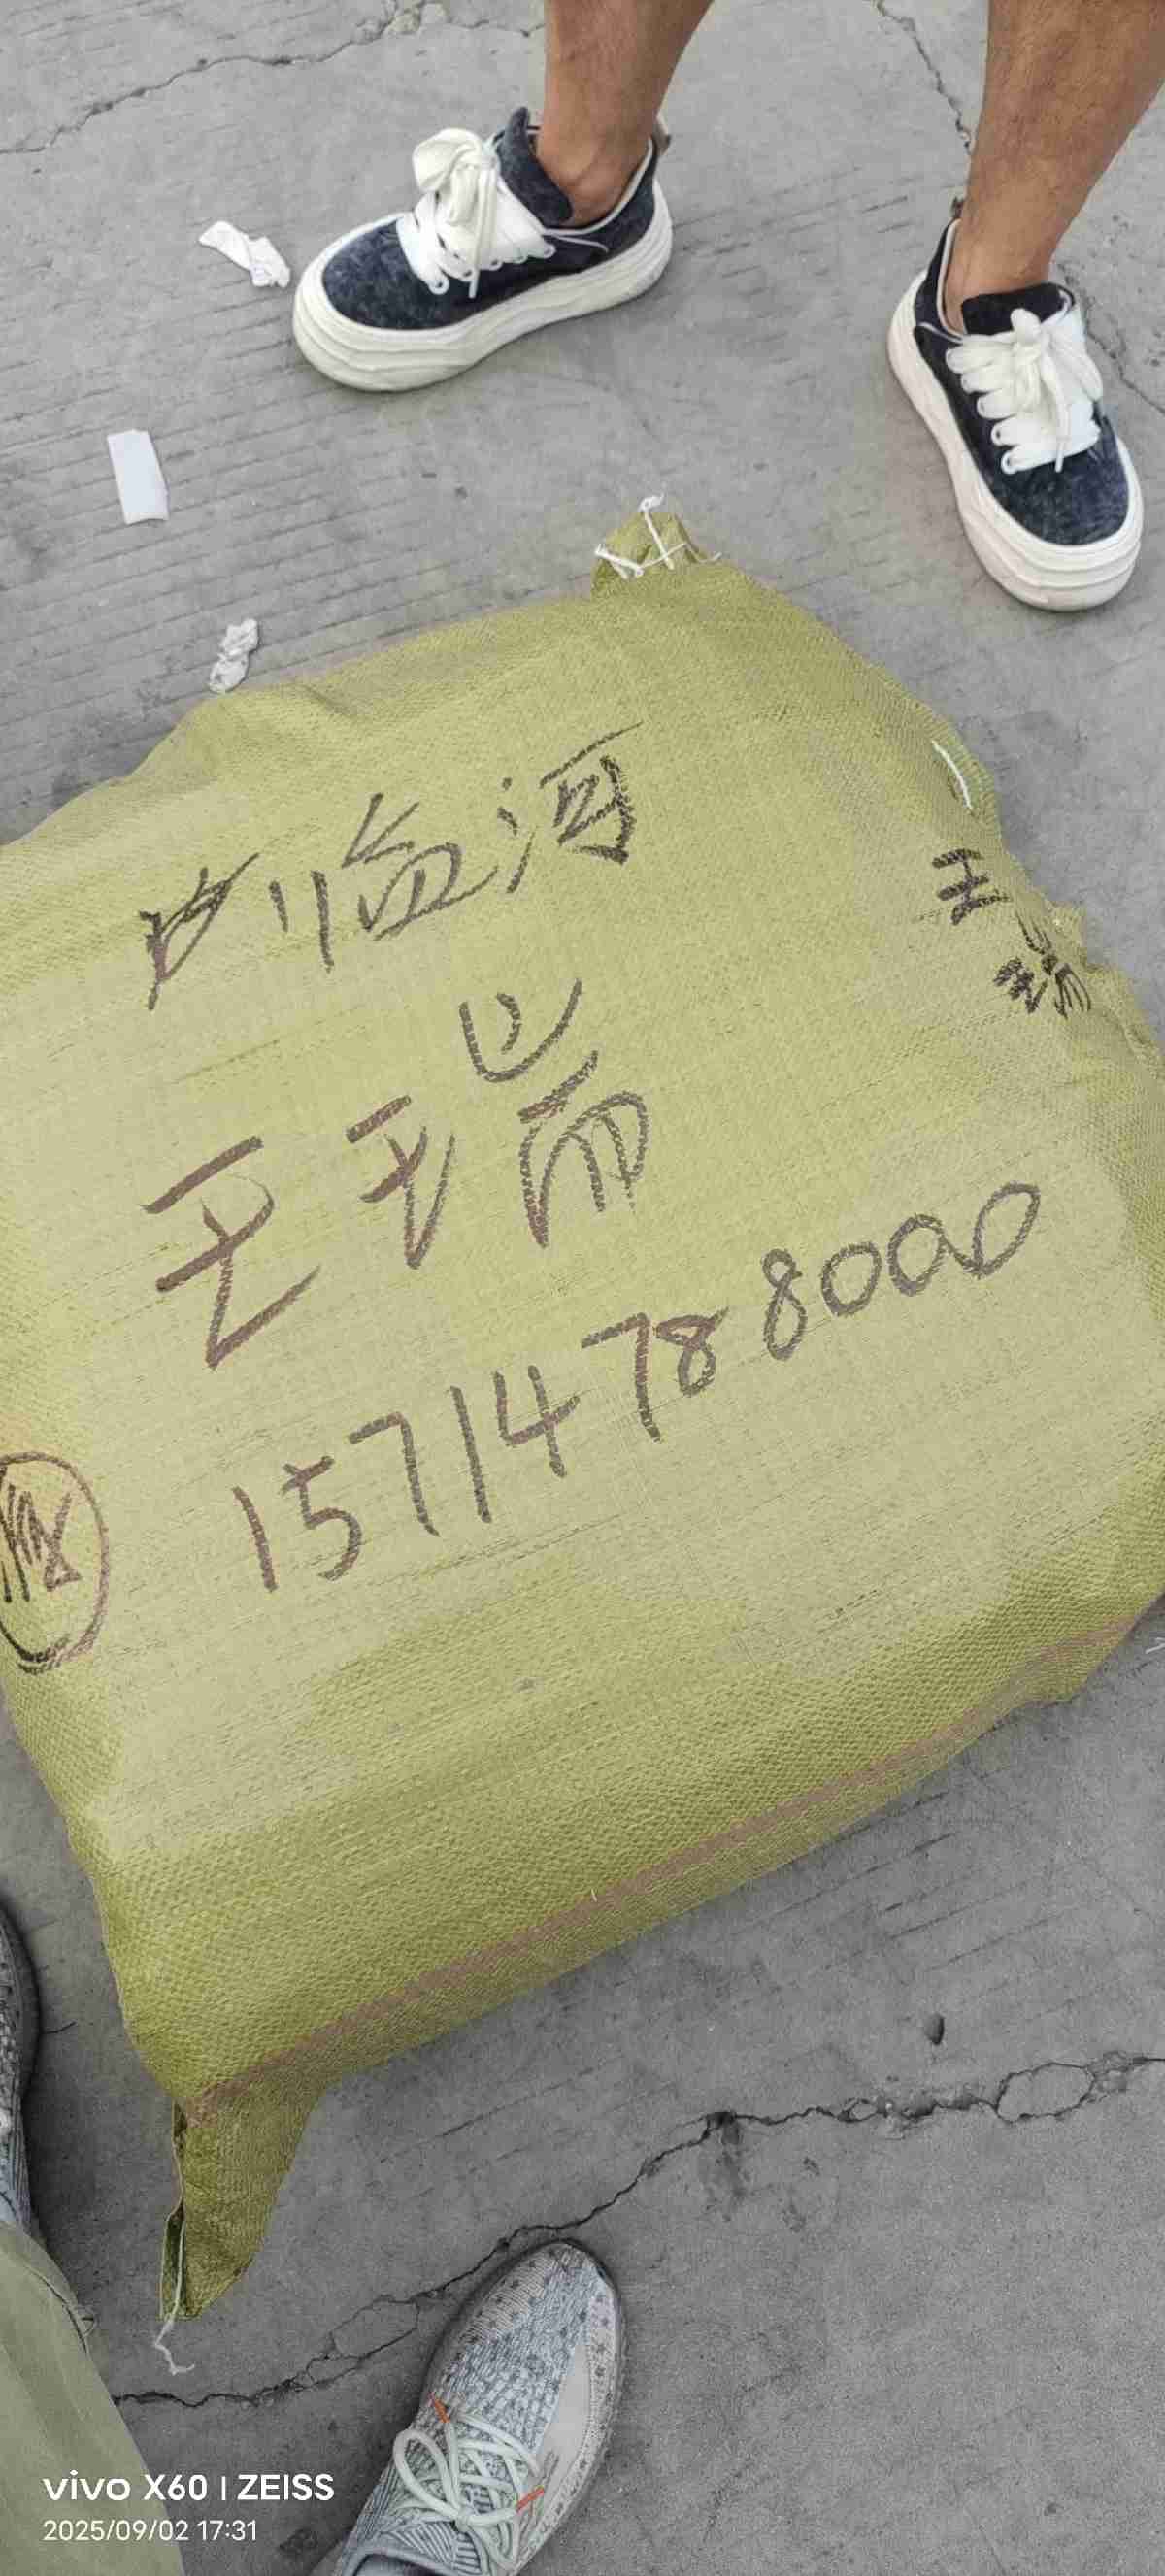 到临河
王瑞
王瑞
15714788000
vivo X60 | ZEISS
2025/09/02 17:31